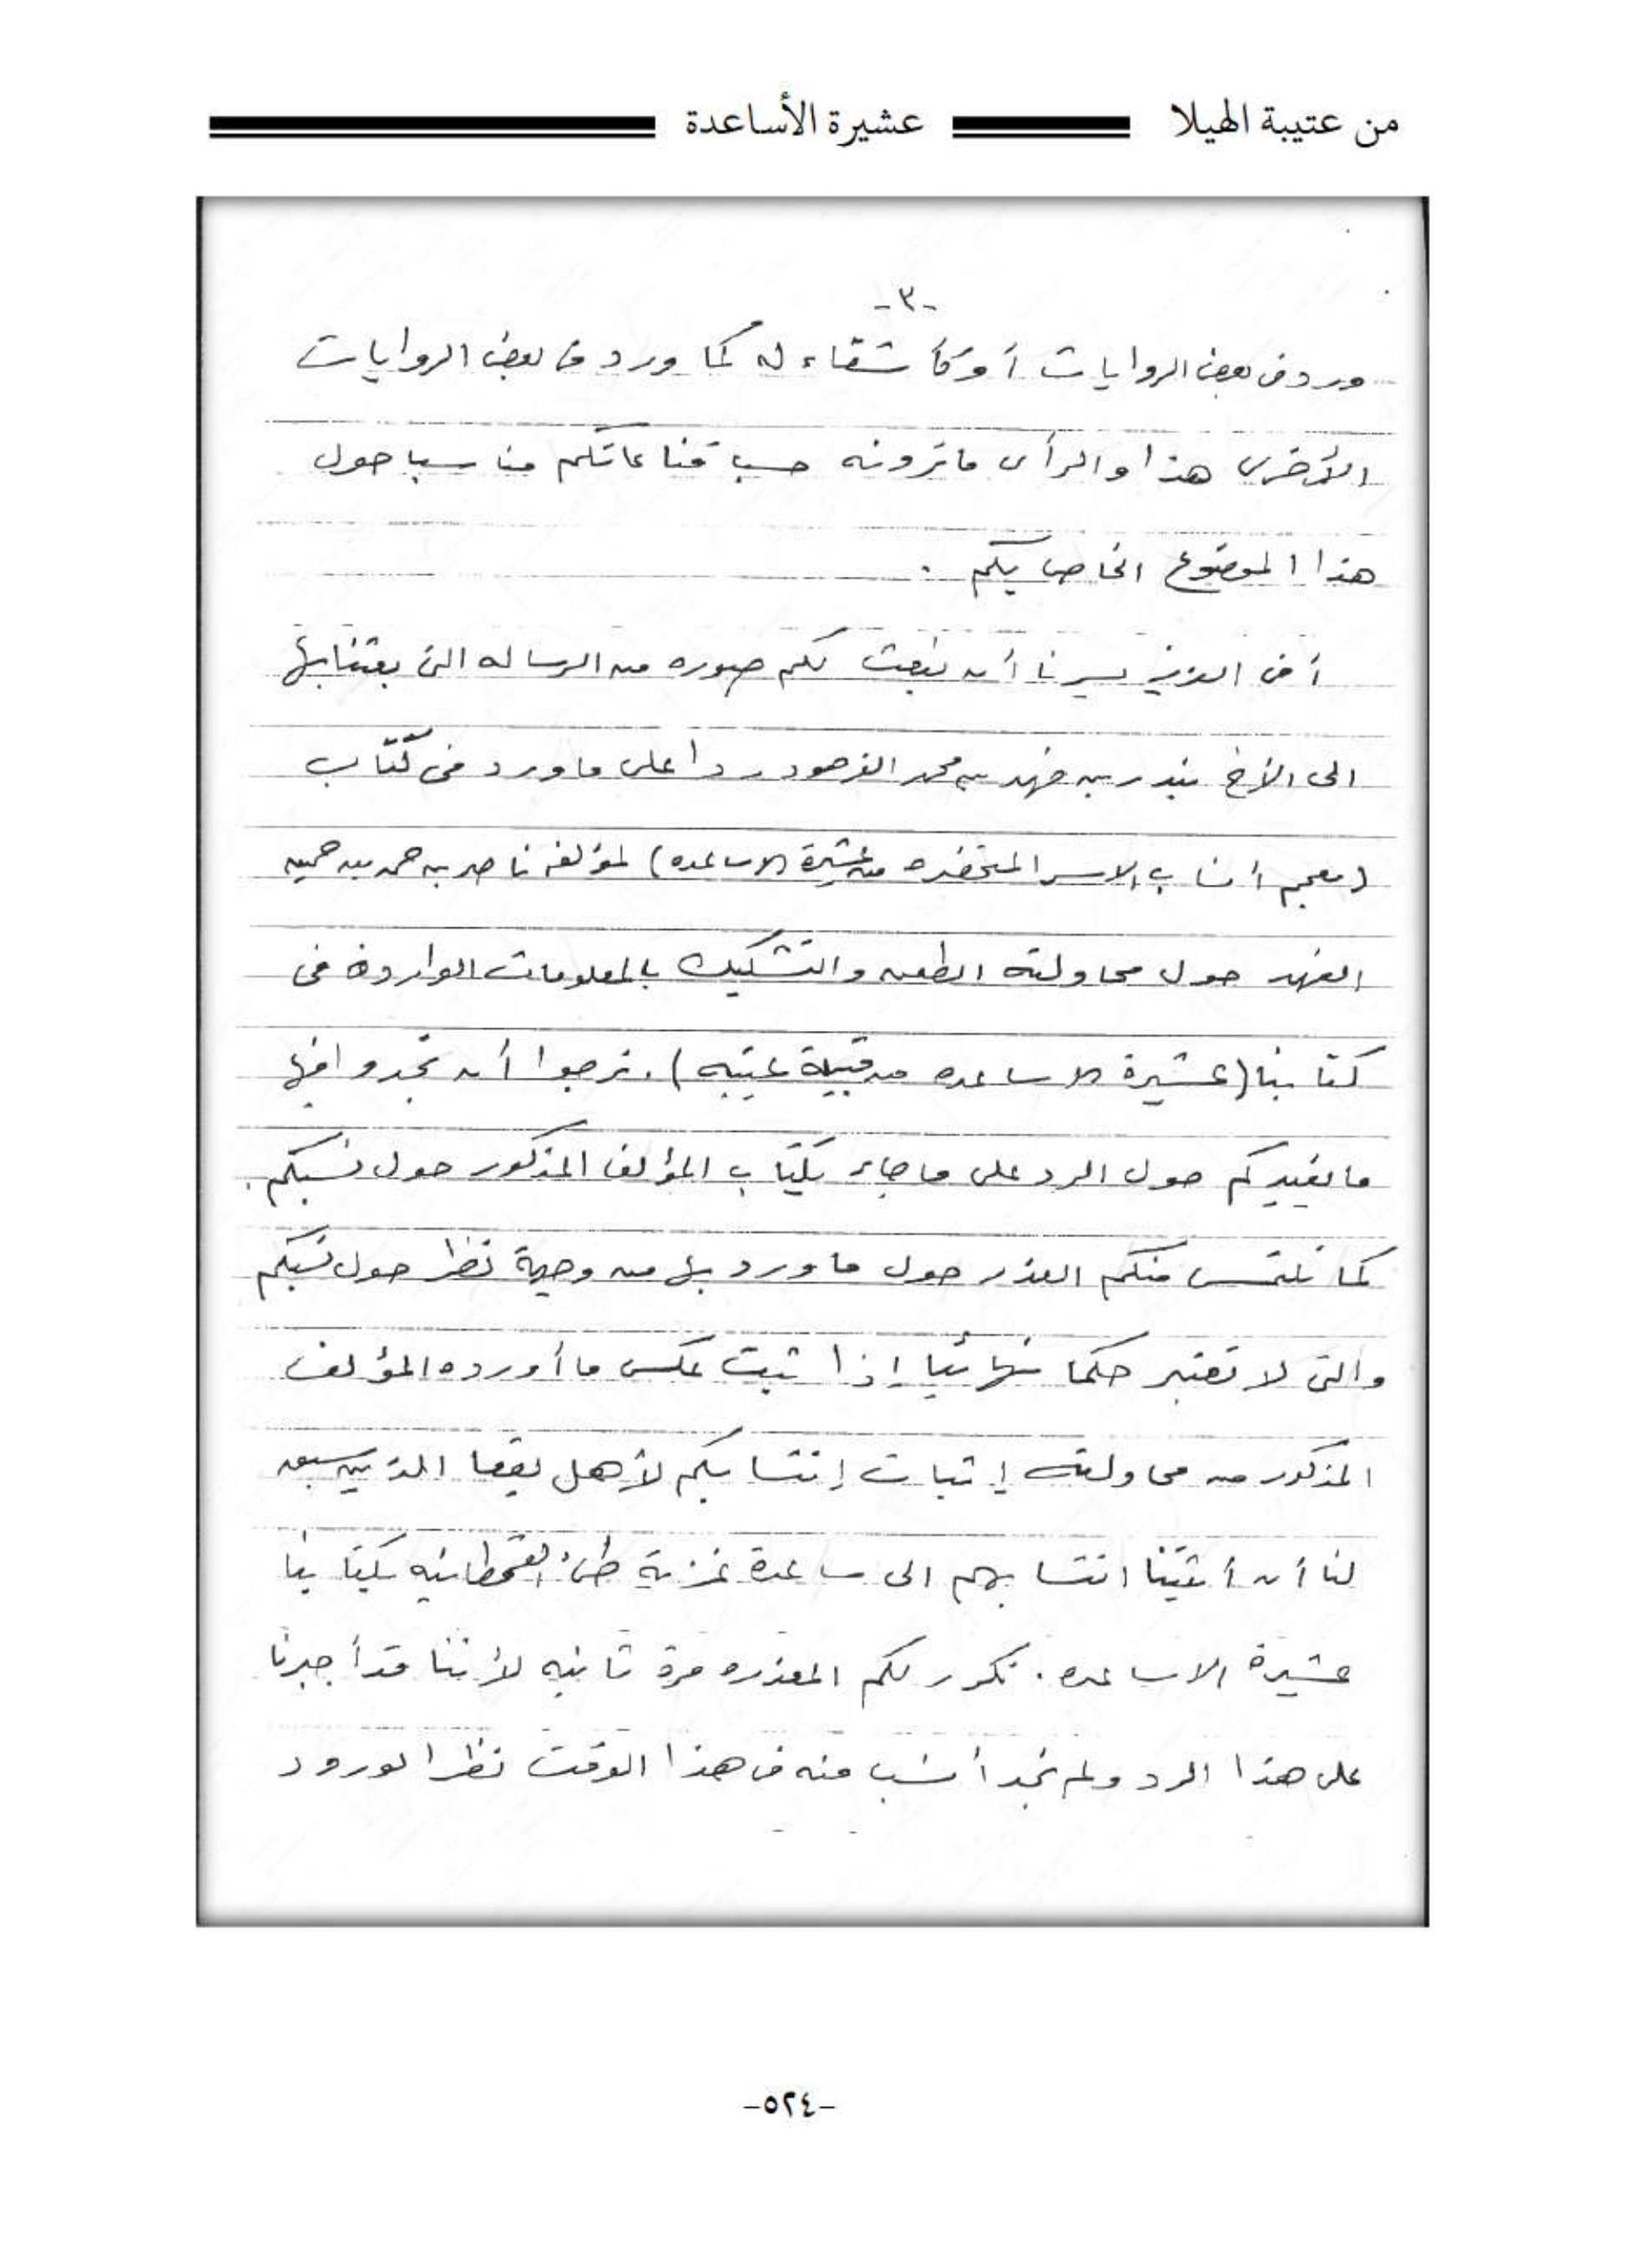 من عتيبة الهيلا عشيرة الأساعدة
-٣-
ورد في بعض الروايات أو كأشقاء له كما ورد في بعض الروايات
الأخرى هذا والرأي ماترونه حسب قناعاتكم مناسبا حول
هذا الموضوع الخاص بكم .
أخي العزيز يسرنا أن نبعث لكم صوره من الرساله التي بعثنا بها
الى الأخ بندر بن فهد بن محمد الفرهود ردا على ماورد في كتاب
(معجم أنساب الاسر المتحضره من عشيرة الاساعده) لمؤلفه ناصر بن حمد بن حمين
الفهد حول محاولته الطعن والتشكيك بالمعلومات الوارده في
كتابنا (عشيرة الاساعده من قبيلة عتيبه) . نرجوا أن تجدوا فيها
مايفيدكم حول الرد على ماجاء بكتاب المؤلف المذكور حول نسبكم .
كما نلتمس منكم العذر حول ماورد بها من وجهة نظر حول نسبكم
والتي لا تعتبر حكما نهائيا إذا ثبت عكس ما أورده المؤلف
المذكور من محاولته إثبات إنتسابكم لأهل بقعا الذين سبق
لنا أن أثبتنا انتسابهم الى ساعدة غزية طيء القحطانيه بكتابنا
عشيرة الاساعده . نكرر لكم المعذره مرة ثانيه لأننا قد أجبرنا
على هذا الرد ولم نجد أنسب منه في هذا الوقت نظرا لورود
-٥٢٤-